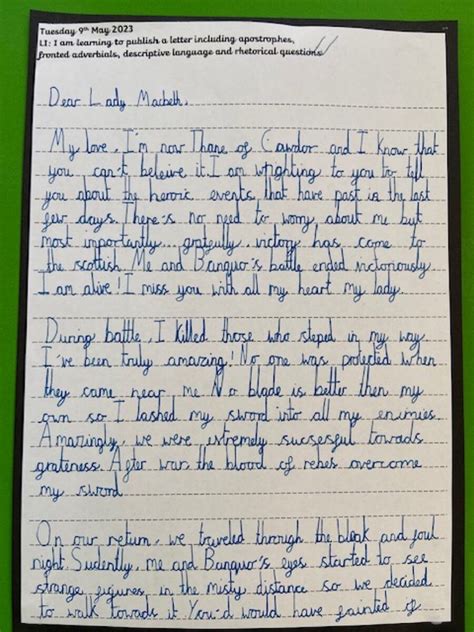 Tuesday 9th May 2023
LI: I am learning to publish a letter including apostrophes,
fronted adverbials, descriptive language and rhetorical questions
Dear Lady Macbeth,
My love, I'm now Thane of Cawdor and I know that
you can't beleive it. I am wrighting to you to tell
you about the heroic events that have past in the last
few days. There's no need to worry about me but
most importantly gratefully, victory has come to
the scottish. Me and Banquo's battle ended victoriously
I am alive! I miss you with all my heart my lady.
During battle, I killed those who steped in my way.
I've been truly amazing! No one was protected when
they came near me. No blade is better then my
own so I lashed my sword into all my enimies.
Amazingly, we were extremely sucsesful towads
grateness. After war, the blood of rebes overcome
my sword
On our return, we traveled through the bleak and foul
night. Sudently, me and Banquo's eyes started to see
strange figures in the misty distance so we decided
to walk towads it. You'd would have fainted if